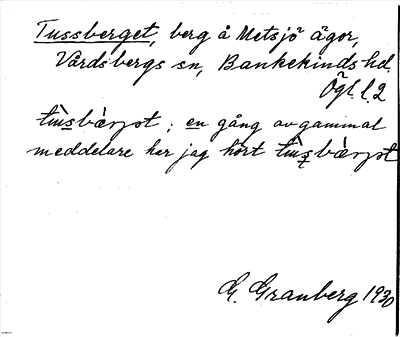 Tussberget, berg å Metsjö ägor,
Vårdsbergs sn, Bankekinds hd.
Ögl. l. 2
tùsbàrjət; en gång av gammal
meddelare har jag hört tùsbàrjət
G. Granberg 1930